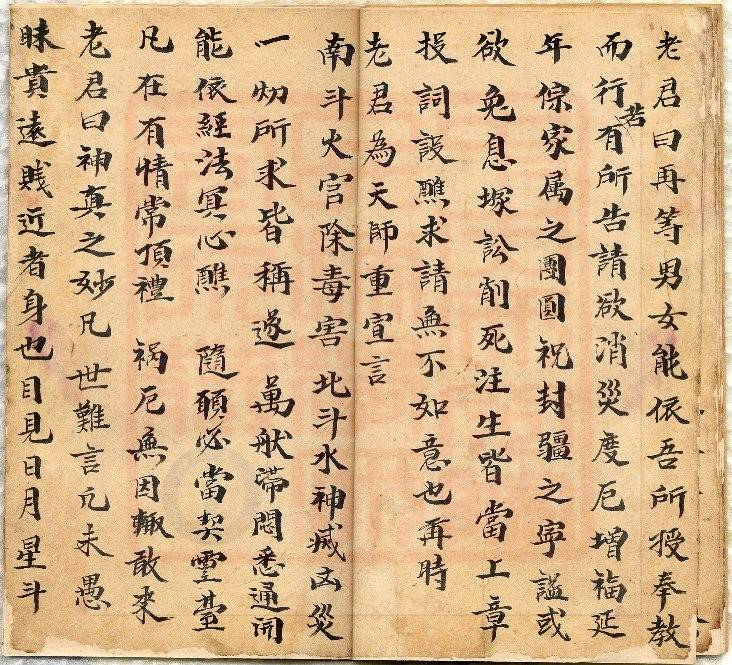 老君曰再等男女能依吾所授奉教
而行若有所告請欲消災度厄增福延
年保家属之團圓祝封疆之寧謐或
欲免息塚訟削死注生皆當上章
投詞設醮求請無不如意也再時
老君為天師重宣言
南斗火官除毒害 北斗水神滅凶災
一切所求皆稱遂 萬般滯悶悉通開
能依經法冥心醮 隨願必當契靈臺
凡在有情常頂禮 祸厄無因輙敢来
老君曰神真之妙凡世難言凢未愚
昧貴遠賎近者身也目見日月星斗